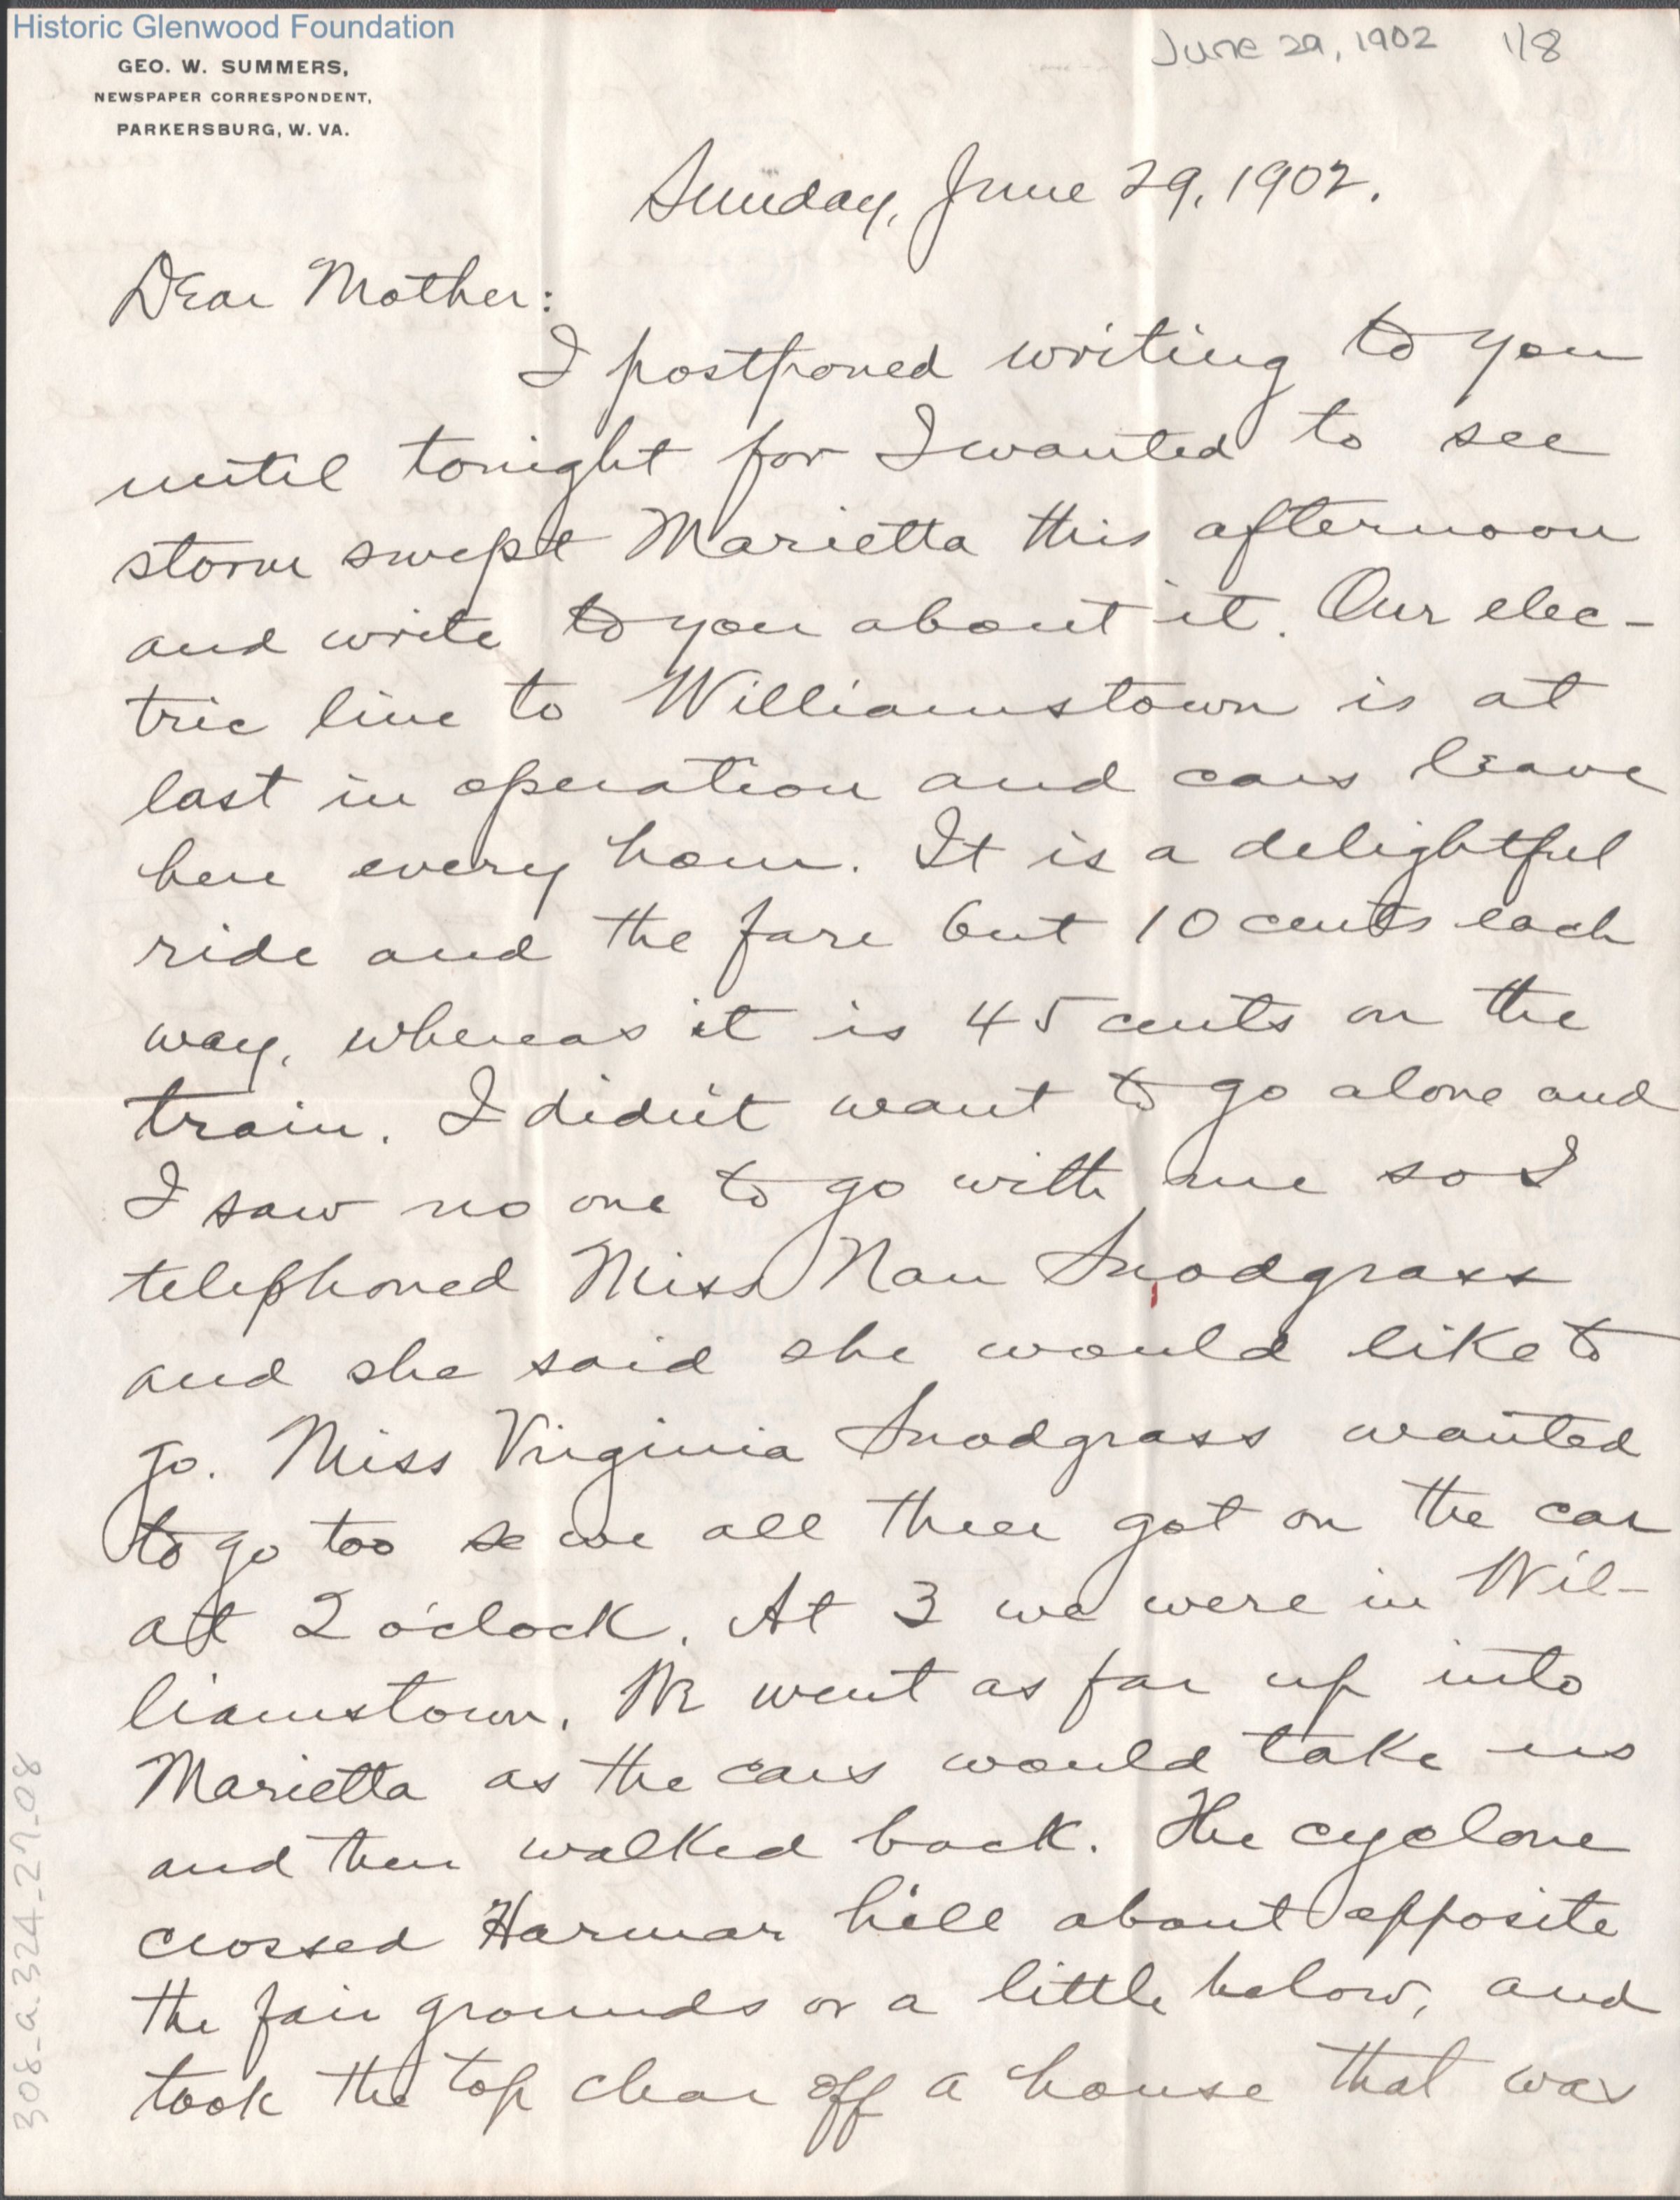 Historic Glenwood Foundation
June 29, 1902 1/8
GEO. W. SUMMERS,
NEWSPAPER CORRESPONDENT,
PARKERSBURG, W. VA.
Sunday, June 29, 1902.
Dear Mother:
I postponed writing to you
until tonight for I wanted to see
storm swept Marietta this afternoon
and write to you about it. Our elec-
tric line to Williamstown is at
last in operation and cars leave
here every hour. It is a delightful
ride and the fare but 10 cents each
way, whereas it is 45 cents on the
train. I didn't want to go alone and
I saw no one to go with me so I
telephoned Miss Nan Snodgrass
and she said she would like to
go. Miss Virginia Snodgrass wanted
to go too so we all three got on the car
at 2 o'clock. At 3 we were in Wil-
liamstown. We went as far up into
Marietta as the cars would take us
and then walked back. The cyclone
crossed Harmar hill about opposite
the fair grounds or a little below, and
took the top clear off a house that was
308-a.324-27-08